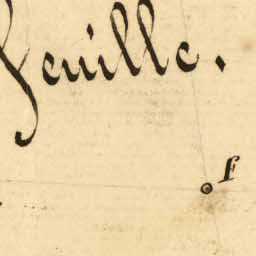 feuille.
f